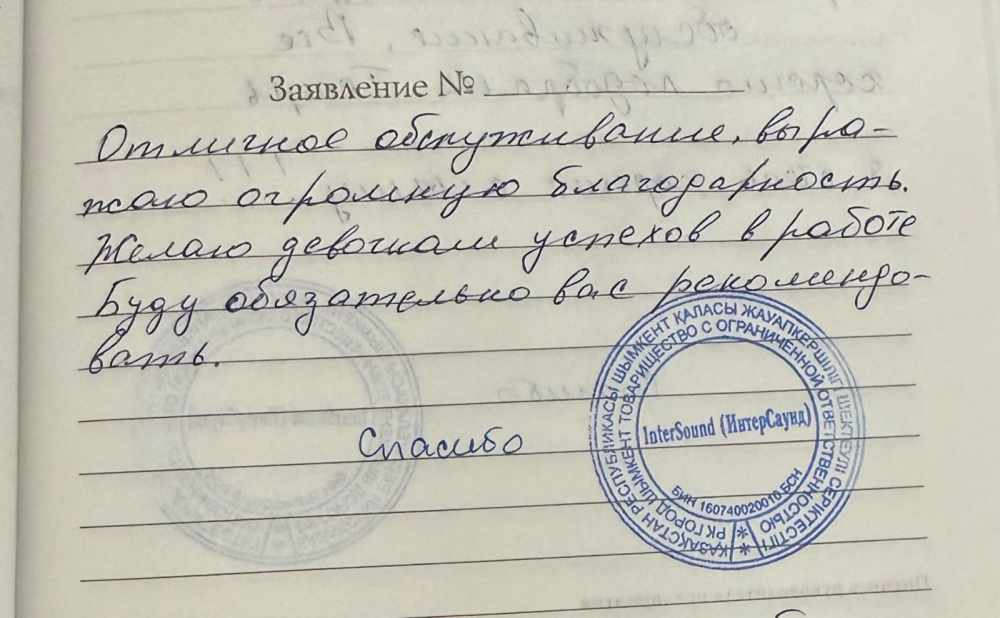 Заявление №
Отличное обслуживание, выра-
жаю огромную благодарность.
Желаю девочкам успехов в работе
Буду обязательно вас рекомендо-
вать.
Спасибо
ҚАЗАҚСТАН РЕСПУБЛИКАСЫ ШЫМКЕНТ ҚАЛАСЫ ЖАУАПКЕРШІЛІГІ ШЕКТЕУЛІ СЕРІКТЕСТІГІ
РК ГОРОД ШЫМКЕНТ ТОВАРИЩЕСТВО С ОГРАНИЧЕННОЙ ОТВЕТСТВЕННОСТЬЮ
InterSound (ИнтерСаунд)
БИН 160740020010 БСН